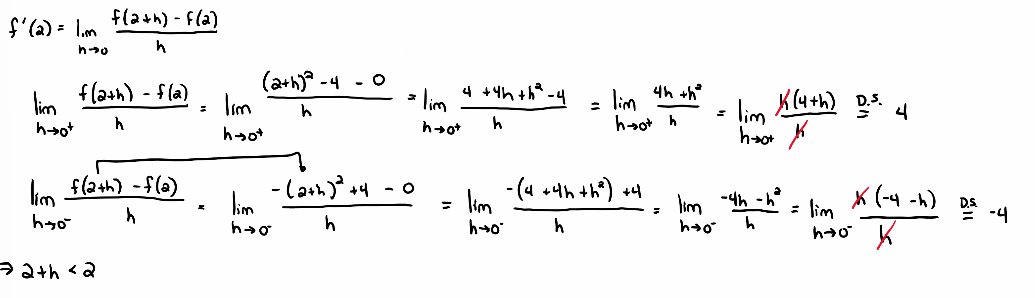 f'(2) = lim h→0 (f(2+h) - f(2))/h
lim h→0⁺ (f(2+h) - f(2))/h = lim h→0⁺ ((2+h)² - 4 - 0)/h = lim h→0⁺ (4 + 4h + h² - 4)/h = lim h→0⁺ (4h + h²)/h = lim h→0⁺ h(4+h)/h D.S. = 4
lim h→0⁻ (f(2+h) - f(2))/h = lim h→0⁻ (-(2+h)² + 4 - 0)/h = lim h→0⁻ (-(4 + 4h + h²) + 4)/h = lim h→0⁻ (-4h - h²)/h = lim h→0⁻ h(-4 - h)/h D.S. = -4
⇒ 2+h < 2